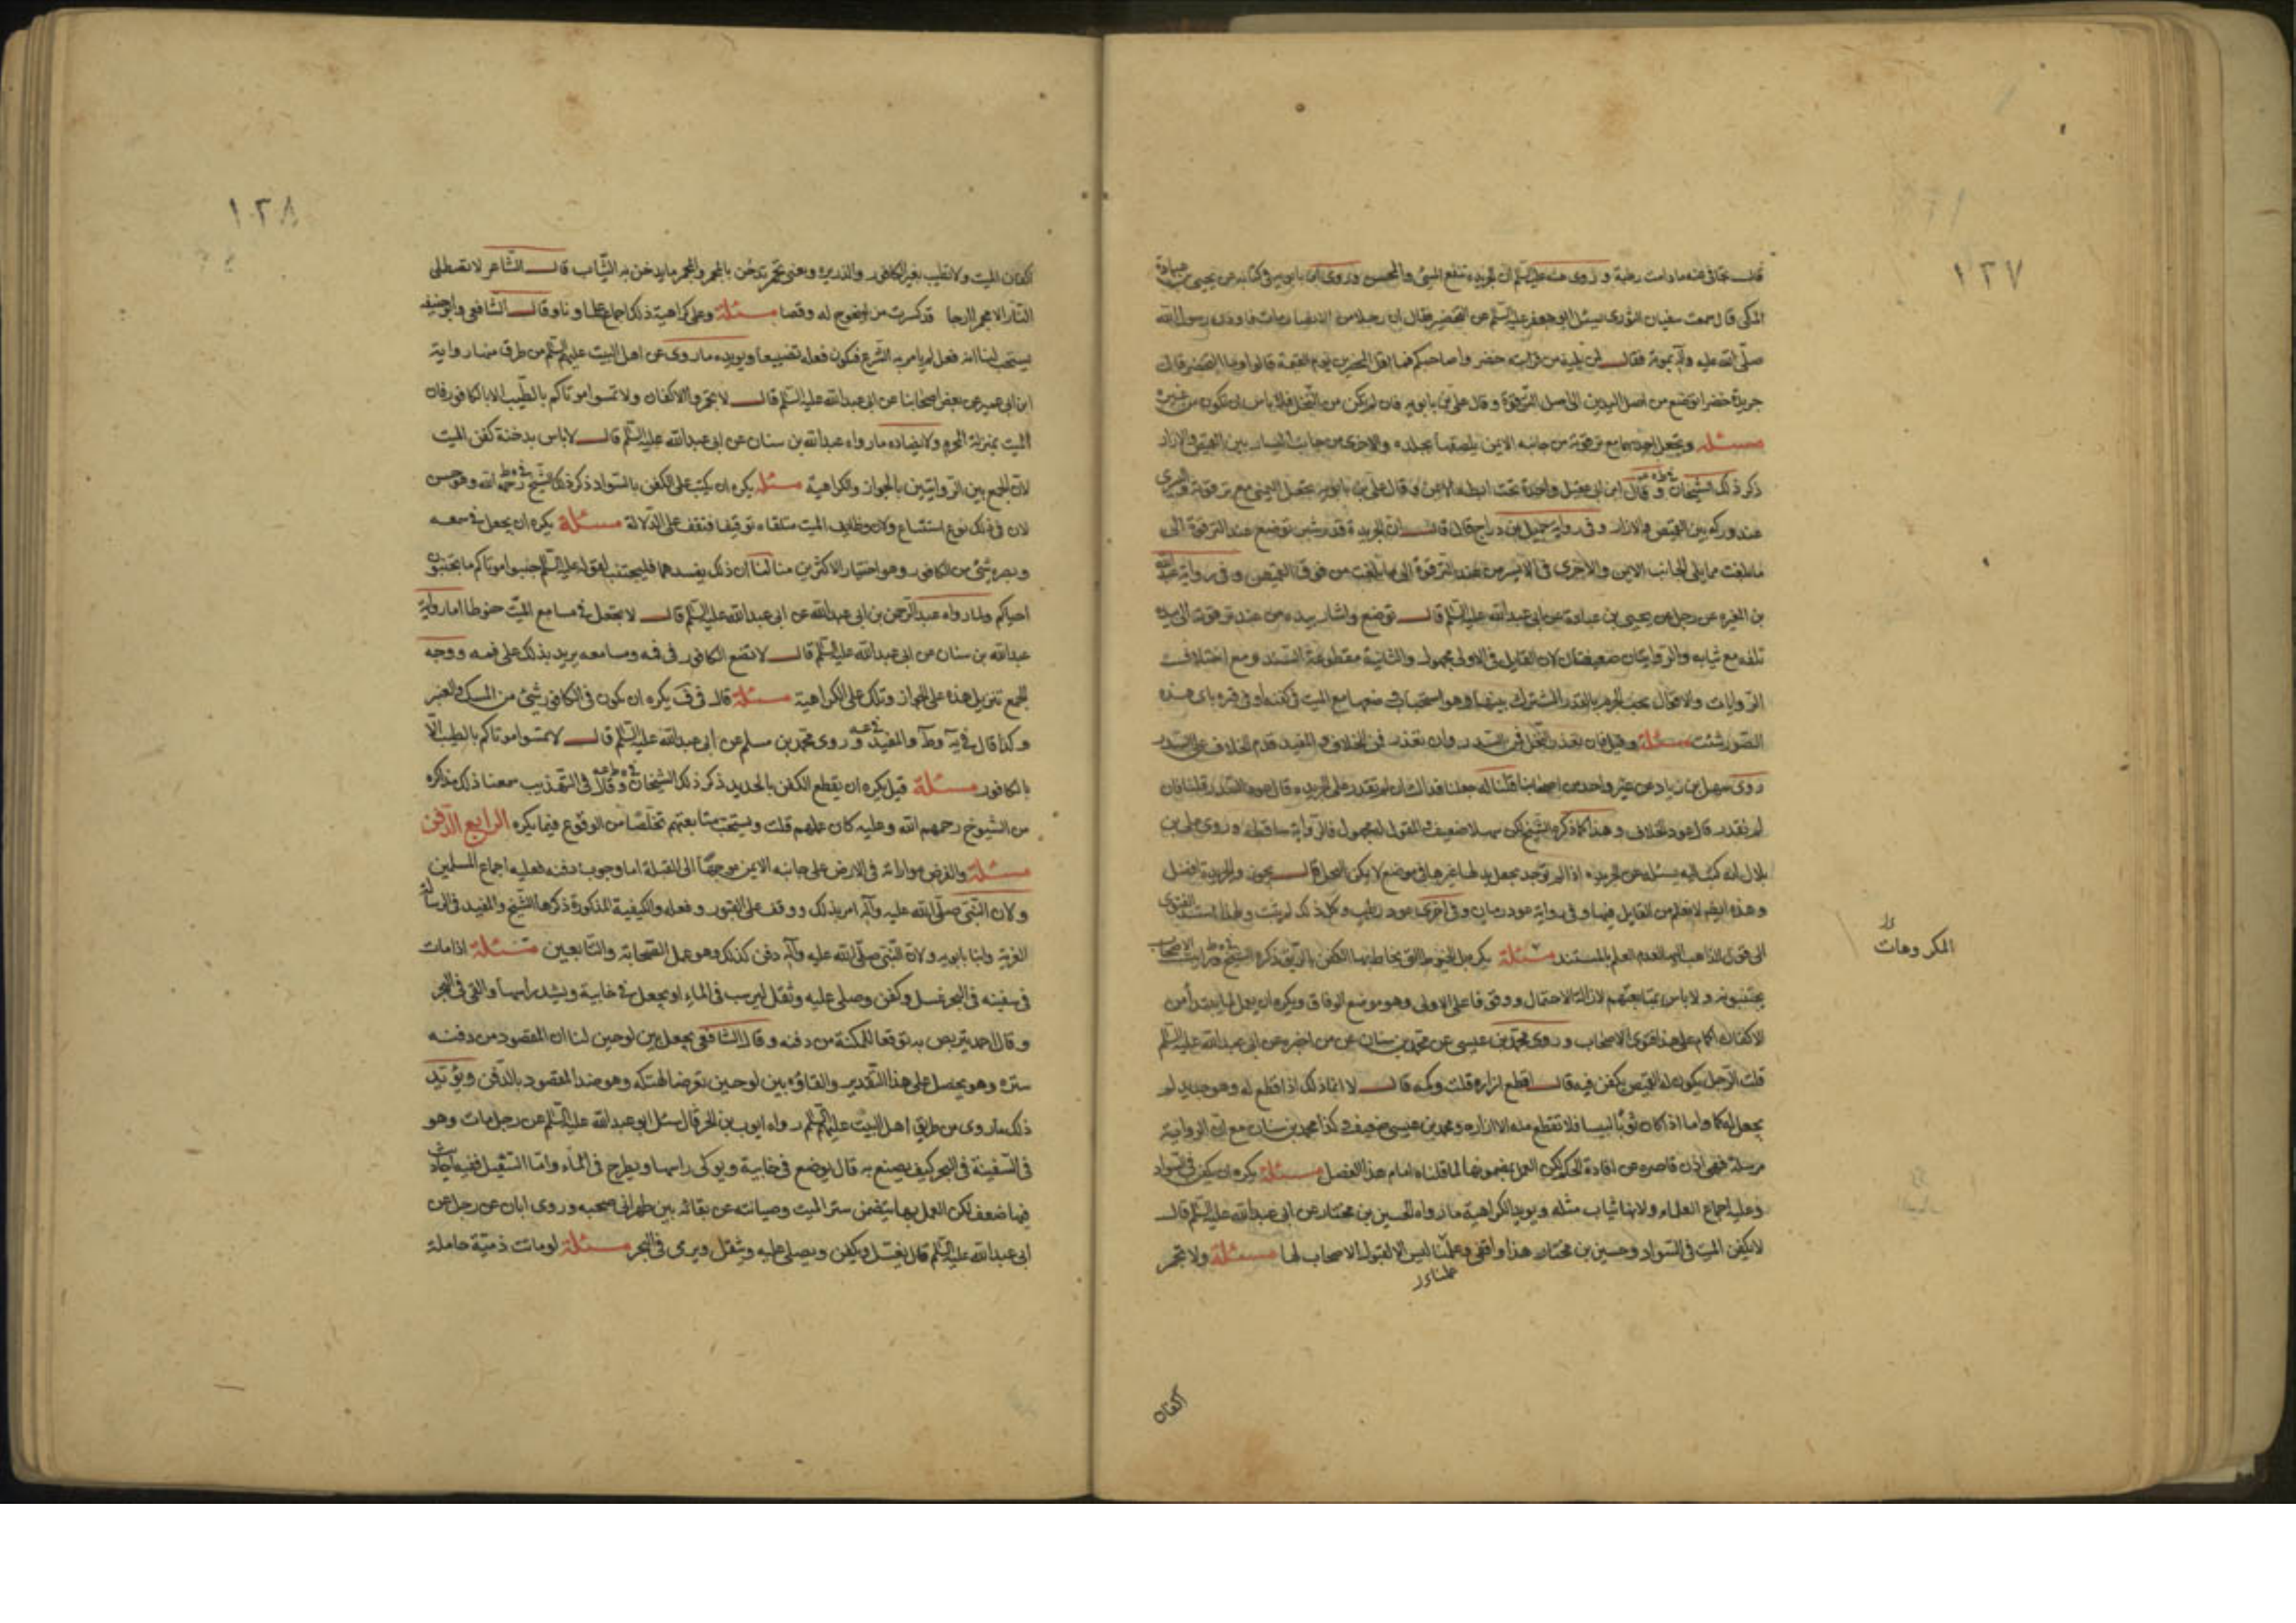 ١٢٧
قال يتجافى عنه مادامت رطبة وروى عنه عليه السلم ان الجريدة تنفع المسئ والمحسن وروى ابن بابويه في كتابه عن يحيى بن عبادة
المكى قال سمعت سفيان الثورى يسئل ابا جعفر عليه السلم عن التخضير فقال ان رجلا من الانصار مات فاوذن رسول الله
صلى الله عليه وآله بموته فقال لمن يليه من قرابته خضروا صاحبكم فما اقل المخضرين يوم القيمة قالوا وما التخضير قال
جريدة خضرا توضع من اصل اليدين الى اصل الترقوة وقال على بن بابويه فان لم يكن من النخل فلا باس ان تكون من غيره
مسئلة ويجعل احديهما مع ترقوته من جانبه الايمن يلصقها بجلده والاخرى من جانب اليسار بين القميص والازار
ذكر ذلك الشيخان وقال ابن ابى عقيل واحدة تحت ابطه الايمن وقال على بن بابويه يجعل اليمنى مع ترقوته واليسرى
عند وركه بين القميص والازار وفى رواية جميل بن دراج قال قال ان الجريدة قدر شبر توضع عند الترقوة الى
ما بلغت مما يلى الجانب الايمن والاخرى فى الايسر من عند الترقوة الى ما بلغت من فوق القميص وفى رواية عبد الله
بن المغيرة عن رجل عن يحيى بن عبادة عن ابى عبدالله عليه السلم قال توضع واشار بيده من عند ترقوته الى يده
تلف مع ثيابه والروايتان ضعيفتان لان القايل فى الاولى مجهول والثانية مقطوعة السند ومع اختلاف
الروايات والاقوال يجب الجزم بالقدر المشترك بينها وهو استحباب ضعها مع الميت فى كفنه او فى قبره باى هذه
الصور شئت مسئلة وقيل فان تعذر النخل فمن السدر وان تعذر فمن الخلاف والمفيد قدم الخلاف على السدر
روى سهل بن زياد عن غير واحد من اصحابنا قلنا له جعلنا فداك ان لم نقدر على الجريدة قال عود السدر قلنا فان
لم نقدر قال عود الخلاف وهذا كما ذكره الشيخ لكن سهلا ضعيف والمقول له مجهول فالرواية ساقطة وروى على بن
بلال انه كتب اليه يسئله عن الجريدة اذا لم توجد يجعل بدلها غيرها فى موضع لا يمكن النخل قال يجوز والجريدة افضل
وهذه ايضا لا يعلم من القايل فيها وفى رواية عود رمان وفى اخرى عود رطب وكل ذلك لم يثبت
الى قول الذاهب اليه لعدم العلم بالمستند مسئلة يكره بل الخيوط التى يخاط بها الكفن بالريق ذكره الشيخ ورايت الاصحاب
يجتنبونه ولا باس بمتابعتهم لازالة الاحتمال ووقوفا على الاولى وهو موضع الوفاق ويكره ان يعمل لما يبتدأ من
الاكفان اكمام على هذا فتوى الاصحاب وروى محمد بن عيسى عن محمد بن سنان عن من اخبره عن ابى عبد الله عليه السلم
قلت الرجل يكون له القميص يكفن فيه قال اقطع ازراره قلت وكمه قال لا انما ذلك اذا قطع له وهو جديد لم
يجعل له كما واما اذا كان ثوبا لبيسا فلا تقطع منه الا ازراره ومحمد بن عيسى ضعيف وكذا محمد بن سنان مع ان الرواية
مرسلة فهى اذن قاصرة عن افادة الحكم لكن العمل بمضمونها لما قلناه امام هذا الفصل مسئلة يكره ان يكفن فى السواد
وعليه اجماع العلماء ولانها ثياب مثلة ويؤيد الكراهية ما رواه الحسين بن مختار عن ابى عبد الله عليه السلم قال
لا يكفن الميت فى السواد وحسين بن مختار هذا واقفى وعملنا ليس الا لقبول الاصحاب لها مسئلة ولا تجمر
عملنا
المكروهات
اكفان
١٢٨
اكفان الميت ولا تطيب بغير الكافور والذريرة ويعنى تجمر تدخن بالمجمر والمجمر ما يدخن به الثياب قال الشاعر لا تصطلى
النار الا مجمرا ارجا قد كسرت من يلنجوج له وقصا مسئلة وعلى كراهية ذلك اجماع علماونا وقال الشافعى وابوحنيفه
يستحب لنا انه فعل لم يامر به الشرع فيكون فعله تضييعا ويؤيده ما روى عن اهل البيت عليهم السلم من طرق منها رواية
ابن ابى عمير عن بعض اصحابنا عن ابى عبدالله عليه السلم قال لا تجمروا الاكفان ولا تمسوا موتاكم بالطيب الا بالكافور فان
الميت بمنزلة المحرم ولا يضاده ما رواه عبدالله بن سنان عن ابى عبدالله عليه السلم قال لا باس بدخنة كفن الميت
لان الجمع بين الروايتين بالجواز والكراهية مسئلة يكره ان يكتب على الكفن بالسواد ذكر ذلك الشيخ رحمه الله وهو حسن
لان فى ذلك نوع استبشاع ولان وظايف الميت متلقاة توقيفا فتقف على الدلالة مسئلة يكره ان يجعل فى سمعه
وبصره شئ من الكافور وهو اختيار الاكثرين منا لنا ان ذلك يفسدهما فليجتنب لقوله عليه السلم جنبوا موتاكم ما تجتنبون
احياكم ولما رواه عبد الرحمن بن ابى عبدالله عن ابى عبدالله عليه السلم قال لا تجعل فى مسامع الميت حنوطا اما رواية
عبدالله بن سنان عن ابى عبدالله عليه السلم قال لا تضع الكافور فى فمه ومسامعه يريد بذلك على فمه ووجه
الجمع تنزيل هذه على الجواز وتلك على الكراهية مسئلة قال فى ف يكره ان يكون فى الكافور شئ من المسك والعنبر
وكذا قال فى يه وط والمفيد وروى محمد بن مسلم عن ابى عبدالله عليه السلم قال لا تمسوا موتاكم بالطيب الا
بالكافور مسئلة قيل يكره ان يقطع الكفن بالحديد ذكر ذلك الشيخان وقالا فى التهذيب سمعنا ذلك مذاكرة
من الشيوخ رحمهم الله وعليه كان عملهم قلت ويستحب متابعتهم تخلصا من الوقوع فيما يكره الرابع الدفن
مسئلة والفرض مواراته فى الارض على جانبه الايمن موجها الى القبلة اما وجوب دفنه فعليه اجماع المسلمين
ولان النبى صلى الله عليه وآله امر بذلك ووقف على القبور وفعله والكيفية المذكورة ذكرها الشيخ والمفيد فى الرسالة
الغرية وابنا بابويه ولان النبى صلى الله عليه وآله دفن كذلك وهو عمل الصحابة والتابعين مسئلة اذا مات
فى سفينه فى البحر غسل وكفن وصلى عليه وثقل ليرسب فى الماء او يجعل فى خابية ويشد راسها والقى فى البحر
وقال احمد يتربص به توقعا للمكنة من دفنه وقال الشافعى يجعل بين لوحين لنا ان المقصود من دفنه
ستره وهو يحصل على هذا التقدير والقاؤه بين لوحين تعرضا لهتكه وهو ضد المقصود بالدفن ويؤيد
ذلك ما روى من طريق اهل البيت عليهم السلم رواه ايوب بن الحر قال سئل ابو عبدالله عليه السلم عن رجل مات وهو
فى السفينة فى البحر كيف يصنع به قال يوضع فى خابية ويوكى راسها ويطرح فى الماء واما التثقيل ففيه احاديث
فيها ضعف لكن العمل بها يتضمن ستر الميت وصيانته عن بقائه بين ظهرانى صحبه وروى ابان عن رجل عن
ابى عبدالله عليه السلم قال يغسل ويكفن ويصلى عليه ويثقل ويرمى فى البحر مسئلة لو ماتت ذمية حاملة